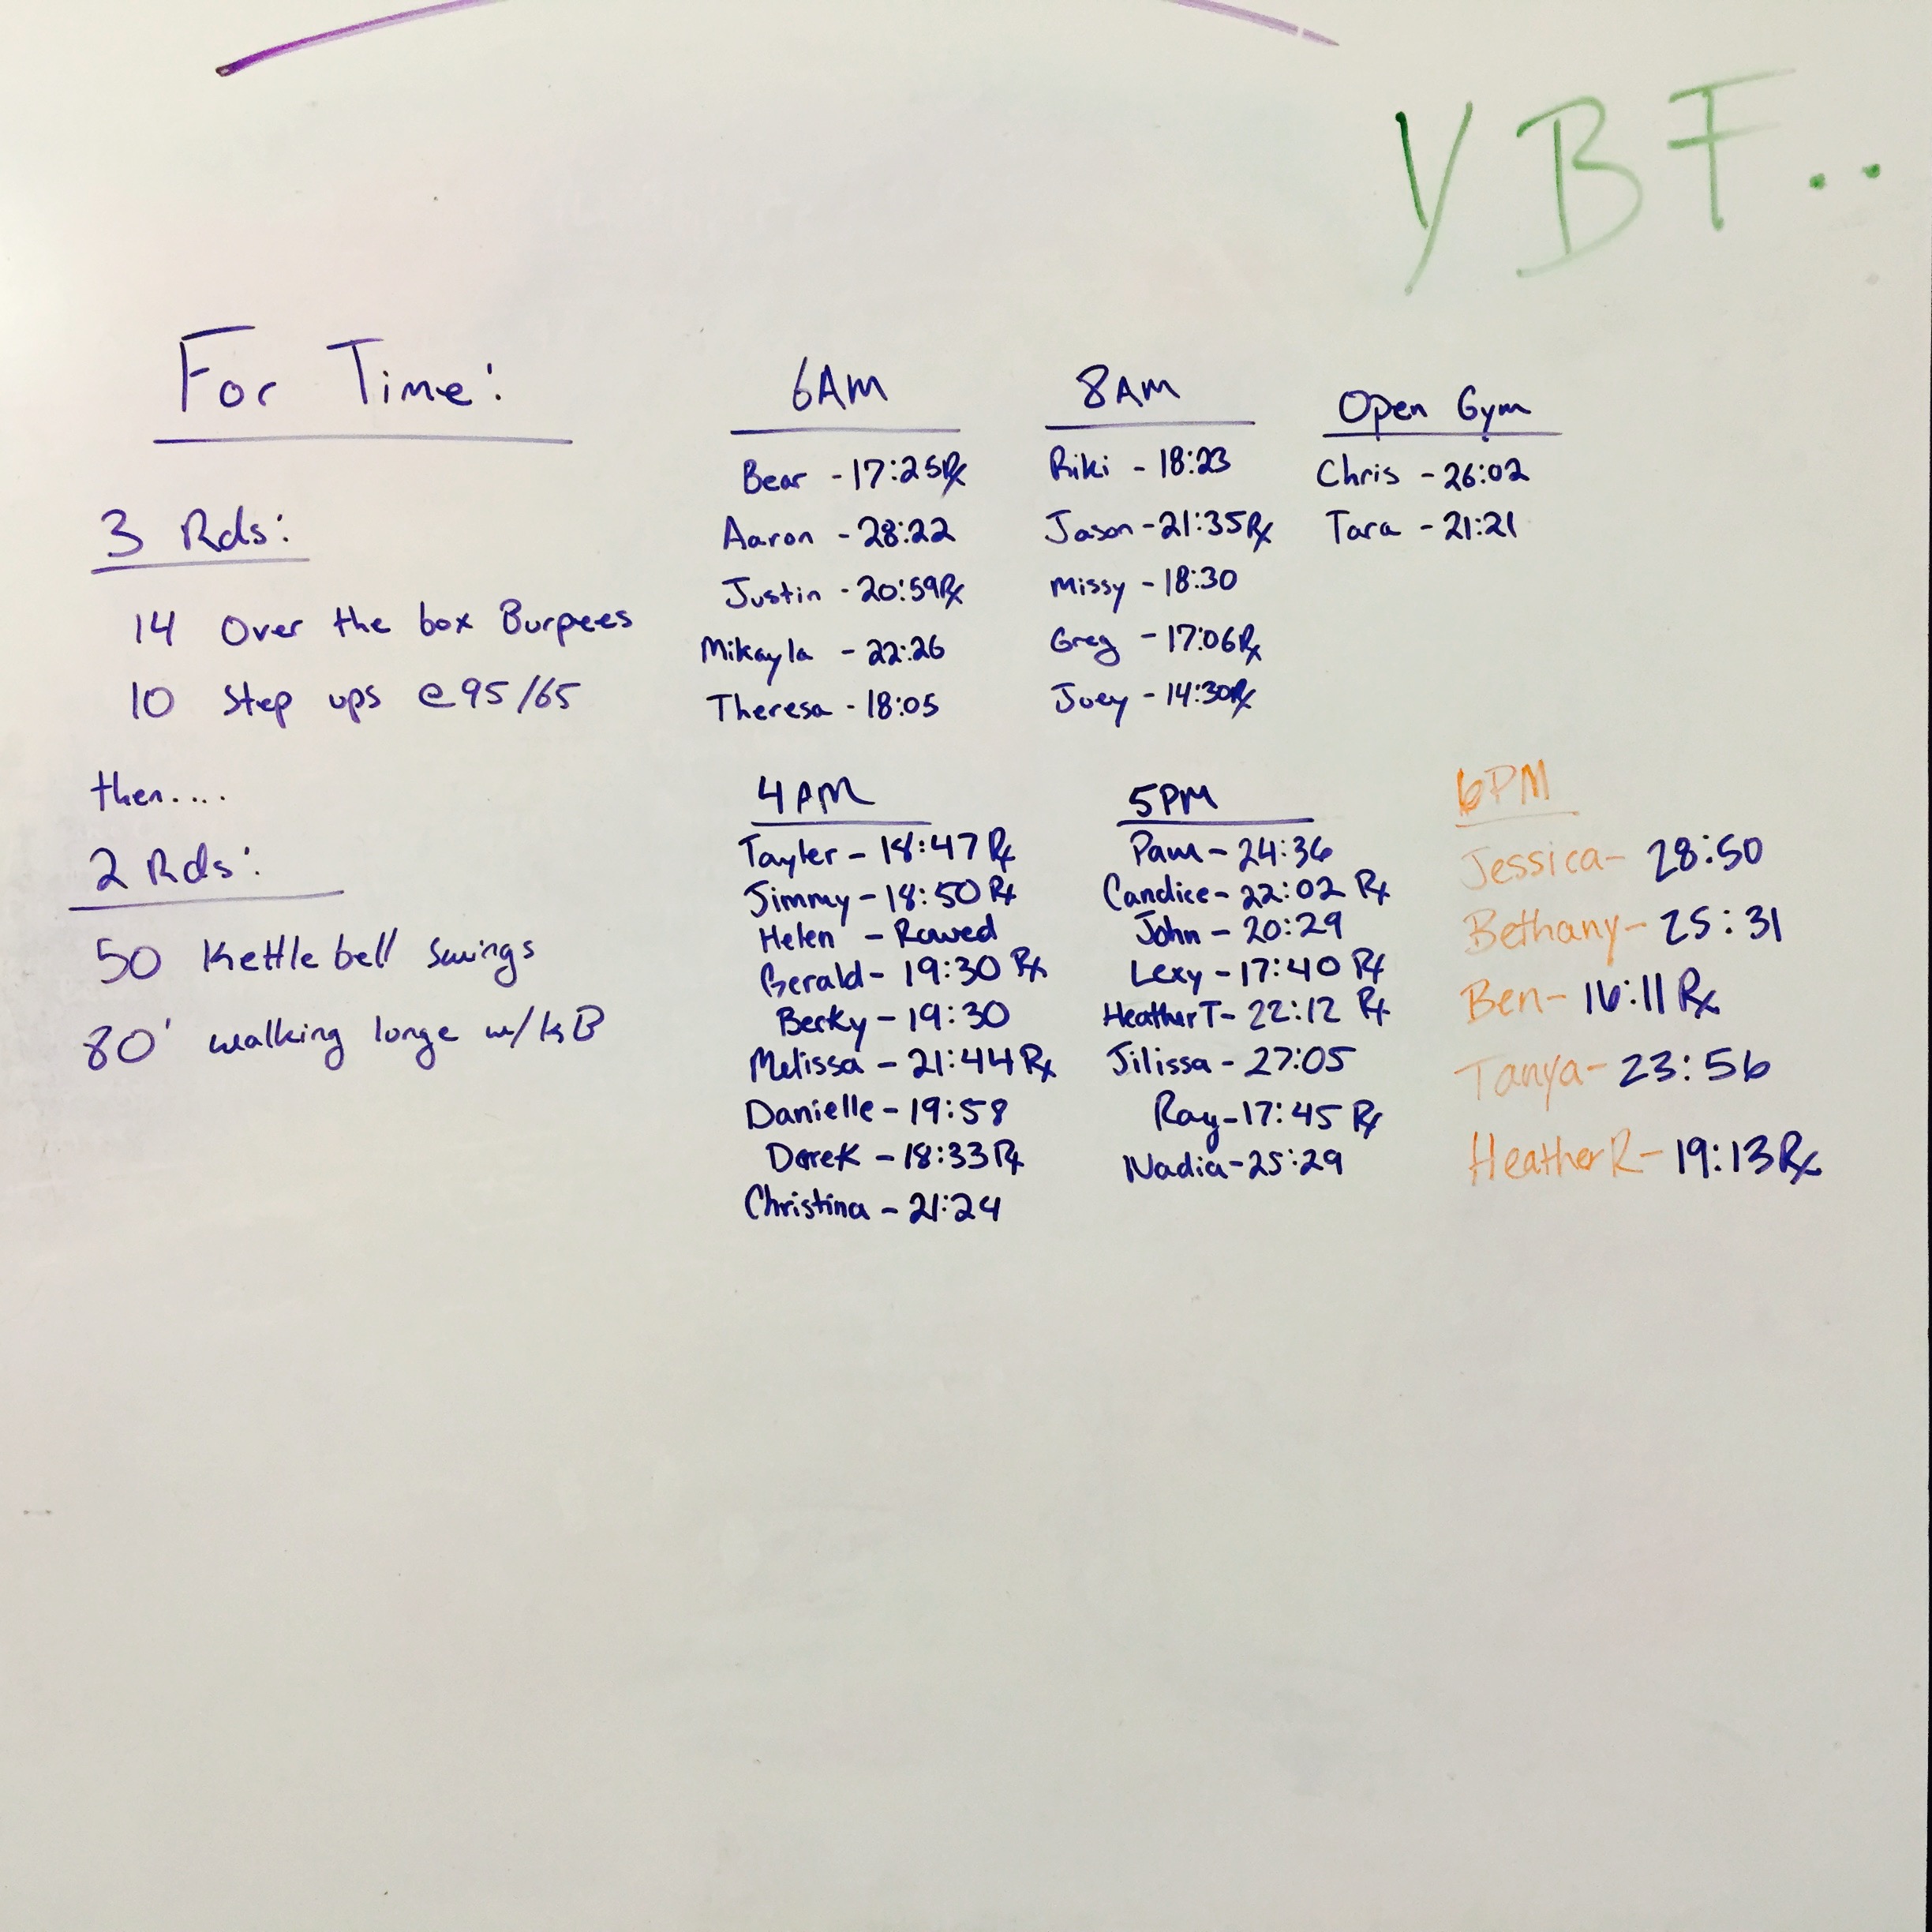 YBF..
For Time:
3 Rds:
14 Over the box Burpees
10 Step ups @ 95/65
then....
2 Rds:
50 Kettlebell Swings
80' walking lunge w/ KB
6AM
Bear - 17:25 Rx
Aaron - 28:22
Justin - 20:59 Rx
Mikayla - 22:26
Theresa - 18:05
8AM
Riki - 18:23
Jason - 21:35 Rx
Missy - 18:30
Greg - 17:06 Rx
Joey - 14:30 Rx
Open Gym
Chris - 26:02
Tara - 21:21
4AM
Tayler - 18:47 Rx
Jimmy - 18:50 Rx
Helen - Rowed
Gerald - 19:30 Rx
Becky - 19:30
Melissa - 21:44 Rx
Danielle - 19:58
Derek - 18:33 Rx
Christina - 21:24
5PM
Pam - 24:36
Candice - 22:02 Rx
John - 20:29
Lexy - 17:40 Rx
Heather T - 22:12 Rx
Jilissa - 27:05
Ray - 17:45 Rx
Nadia - 25:29
6PM
Jessica - 28:50
Bethany - 25:31
Ben - 16:11 Rx
Tanya - 23:56
Heather R - 19:13 Rx